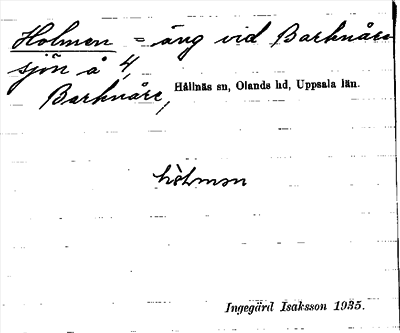 Holmen = äng vid Barknåre
sjön å 4,
Barknåre, Hållnäs sn, Olands hd, Uppsala län.
hòlmən
Ingegärd Isaksson 1935.